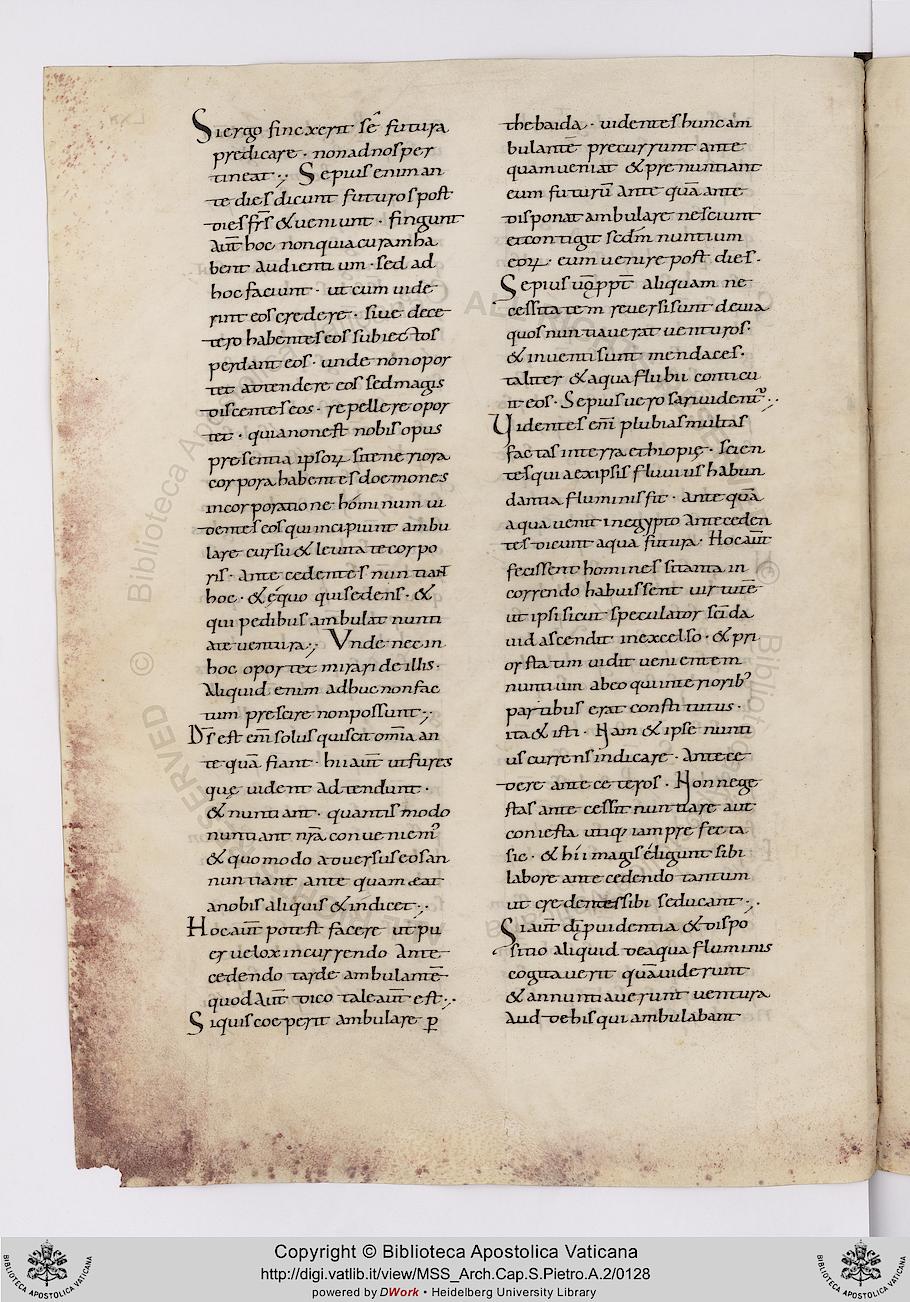 Siergo finexerit se futura
predicare · nonadnosper
tineat ·, Sepius eniman
te dies dicunt futuros post
dies frs & ueniunt · fingunt
aut hoc nonquia curam ha
bent audientium · sed ad
hoc faciunt · ut cum uide
rint eos credere · siue dece
tero habentes eos subiectos
perdant eos · unde non opor
tet adtendere eos sed magis
discentes eos · repellere opor
tet · quia non est nobis opus
presentia ipsoꝝ si tenerიora
corpora habentes doemones
incorporatione hóminum ui
dentes eos qui incipiunt ambu
lare cursu & leuitate corpo
ris · antecedentes nuntiant
hoc · & ęquo qui sedens · &
qui pedibus ambulat nunti
at euentura ·, Vnde nec in
hoc oportet mirari de illis ·
Aliquid enim adhuc non fac
tum prescire non possunt ·,
Ds est eni solus qui scit omia an
te quā fiant · hii aut ut fures
quę uident adtendunt ·
& nuntiant · quantis modo
nuntiant nra conueniem
& quomodo aduersus eos an
nuntiant ante quam eat
a nobis aliquis & indicet ·,
Hoc aut potest facere ut pu
er uelox incurrendo ante
cedendo tarde ambulantē
quod aut dico tale aut est ·,
Siquis coeperit ambulare ꝑ
thebaida · uidentes hunc am
bulantē precurrunt ante
quam ueniat & prenuntiant
eum futurū ante quā ante
disponat ambulare nesciunt
et contigit sedm nuntium
eoꝝ · eum uenire post dies ·
Sepius ū ppt aliquam ne
cessitatem reuersi sunt deuia
quos nuntiauerat uenturos ·
& inuenti sunt mendaces ·
taliter & aqua flubii conticu
it eos · Sepius uero sari uident ·,
Uidentes eni plubias multas
factas in terra ethiopię · scien
tes quia ex ipsis fluuius habun
dantia fluminis fit · ante quā
aqua uenit in egypto anteceden
tes dicunt aqua futura · Hoc aut
fecissent homines si tanta in
correndo habuissent uirtutē
ut ipsi sicut speculator sci da
uid ascendit in excelso · & pri
or statum uidit uenientem
nuntium ab eo qui interiorib
partibus erat constitutus ·
ita & isti · Nam & ipse nunti
us currens indicare · antece
dere ante ceteros · Non nege
stas antecessit nuntiare aut
coniesta utiq; iam prefecta
sic · & hii magis éligunt sibi
labore antecedendo tantum
ut credentes sibi seducant ·,
Si aut di puidentia & dispo
sitio aliquid de aqua fluminis
cogitauerit quā uiderunt
& annuntiauerunt uentura
aud de his qui ambulabant
Copyright © Biblioteca Apostolica Vaticana
http://digi.vatlib.it/view/MSS_Arch.Cap.S.Pietro.A.2/0128
powered by DWork • Heidelberg University Library